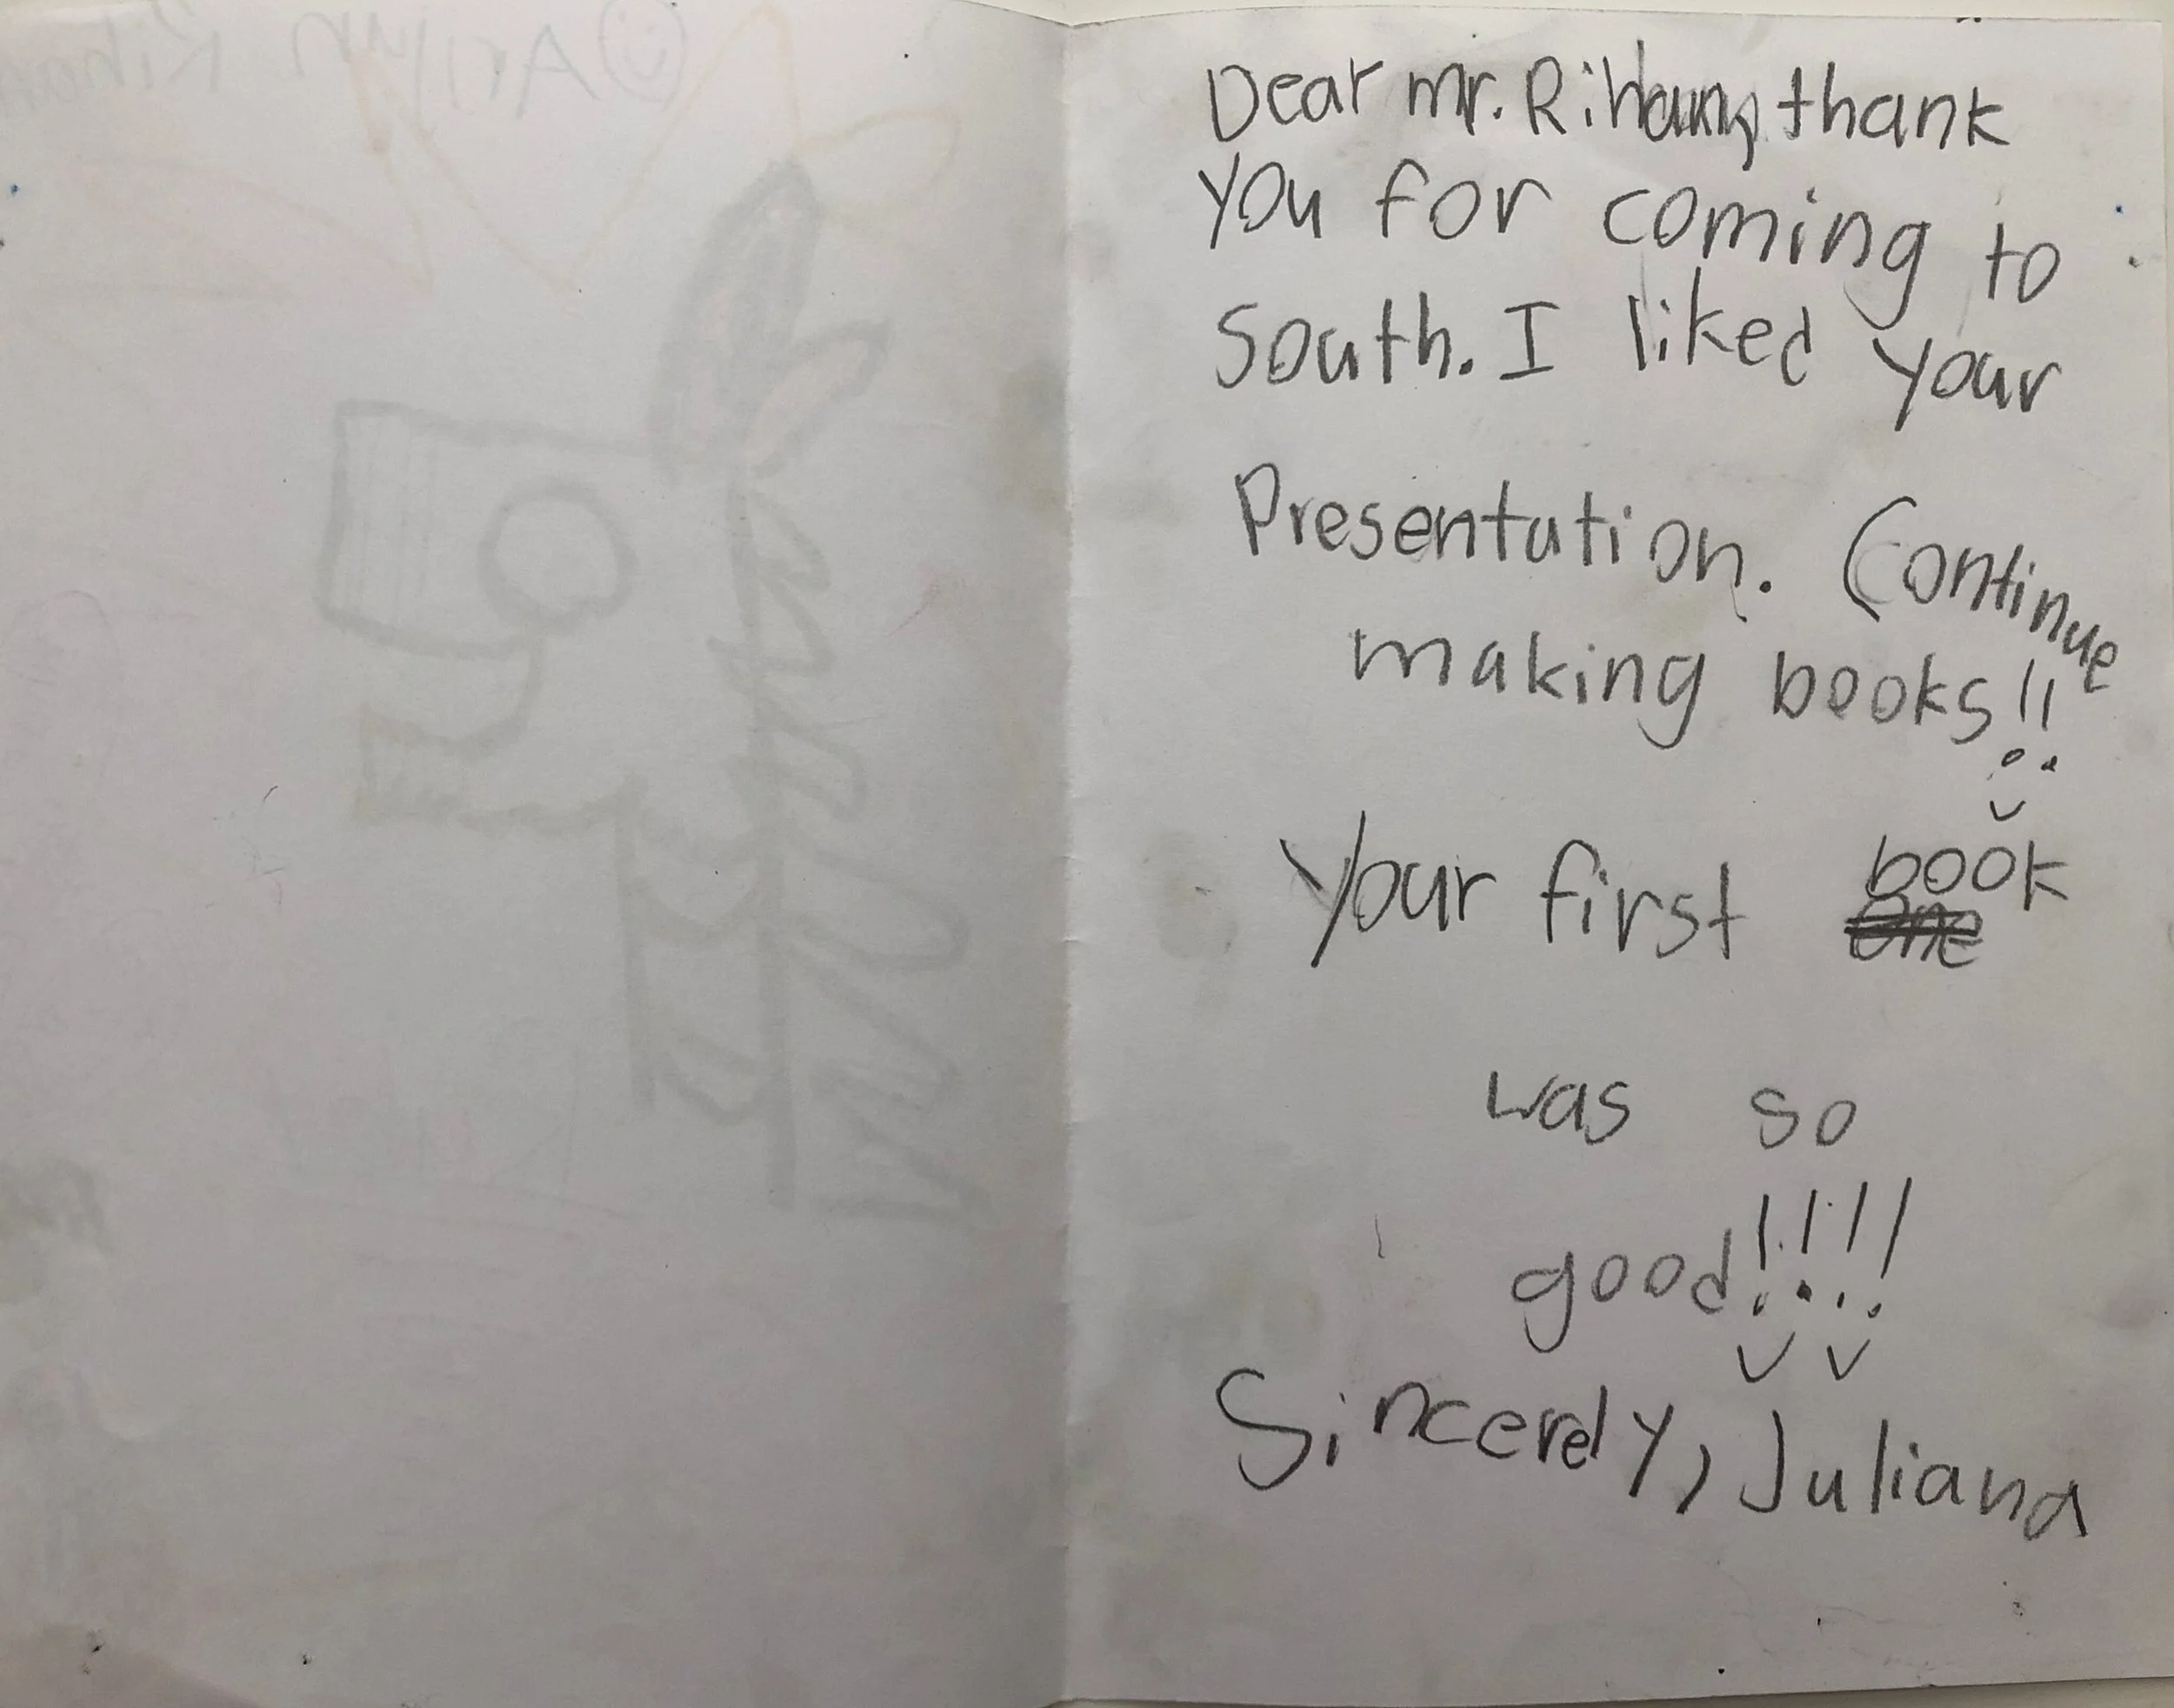 Dear mr. Rihan, thank
you for coming to
South. I liked your
Presentation. Continue
making books!!
Your first book
was so
good!!!!
Sincerely, Juliana